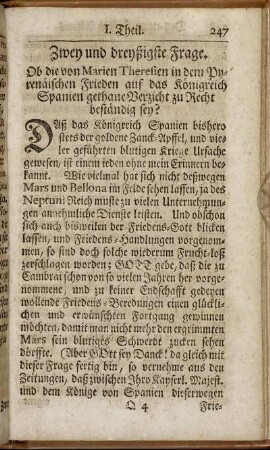 I. Theil. 247
Zwey und dreyßigste Frage.
Ob die von Marien Theresien in dem Py-
renäischen Frieden auf das Königreich
Spanien gethane Verzicht zu Recht
beständig sey?
Daß das Königreich Spanien bishero
öfters der goldene Zanck-Apffel, und vie-
ler geführten blutigen Kriege Ursache
gewesen, ist einem jeden ohne mein Erinnern be-
kannt. Wie vielmal hat sich nicht deßwegen
Mars und Bellona im Felde sehen lassen, ja des
Neptuni Reich muste zu vielen Unternehmun-
gen annehmliche Dienste leisten. Und obschon
sich auch bisweilen der Friedens-Gott blicken
lassen, und Friedens-Handlungen vorgenom-
men, so sind doch solche wiederum Frucht-loß
zerschlagen worden; GOTT gebe, daß die zu
Cambrai schon von so vielen Jahren her vorge-
nommene, und zu keiner Endschafft gedeyen
wollende Friedens-Beredungen einen glückli-
chen und erwünschten Fortgang gewinnen
möchten, damit man nicht mehr den ergrimmten
Mars sein blutiges Schwerdt zucken sehen
dörffte. (Aber GOtt sey Danck! da gleich mit
dieser Frage fertig bin, so vernehme aus den
Zeitungen, daß zwischen Ihro Kayserl. Majest.
und dem Könige von Spanien dieserwegen
Q 4 Frie-